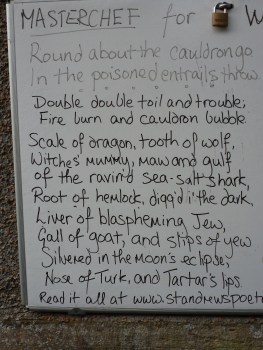 MASTERCHEF for W
Round about the cauldron go
In the poisoned entrails throw.
Double double toil and trouble;
Fire burn and cauldron bubble
Scale of dragon, tooth of wolf,
Witches' mummy, maw and gulf
of the ravin'd sea-salt shark,
Root of hemlock, digg'd i' the dark,
Liver of blaspheming Jew,
Gall of goat, and slips of yew
Silvered in the moon's eclipse,
Nose of Turk, and Tartar's lips
Read it all at www.standrewspoet